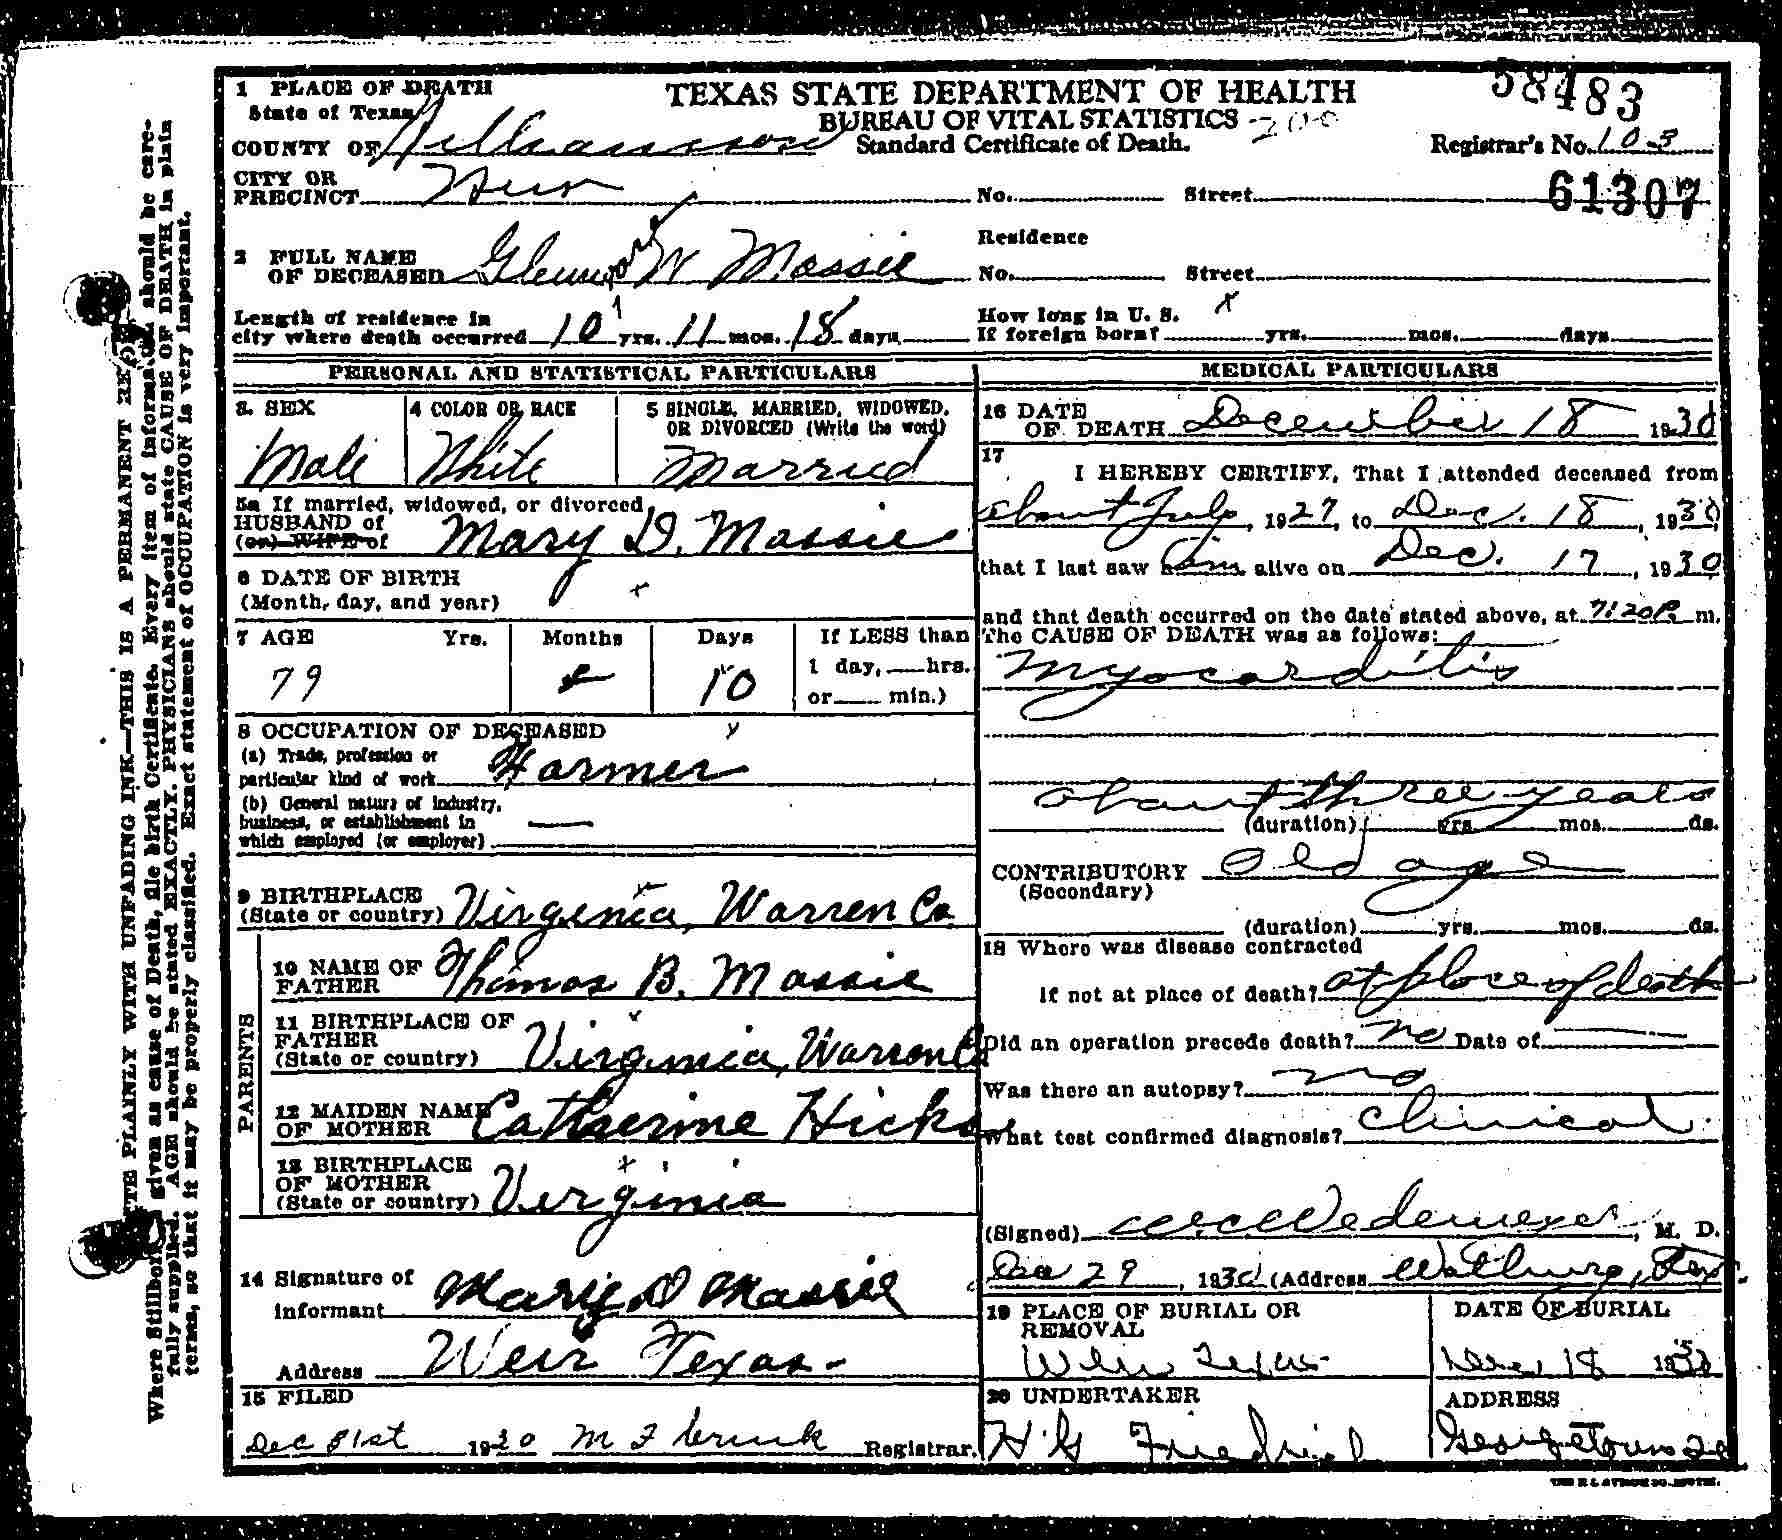 58483
1 PLACE OF DEATH
TEXAS STATE DEPARTMENT OF HEALTH
State of Texas
BUREAU OF VITAL STATISTICS
COUNTY OF Williamson
Standard Certificate of Death.
Registrar's No. 10-3
CITY OR
PRECINCT Weir No. Street
61307
Residence
2 FULL NAME
OF DECEASED Glenmore W Massie No. Street
Length of residence in
city where death occurred 10 yrs. 11 mos. 18 days
How long in U. S. x
If foreign born? yrs. mos. days
PERSONAL AND STATISTICAL PARTICULARS
3. SEX 4 COLOR OR RACE 5 SINGLE, MARRIED, WIDOWED,
OR DIVORCED (Write the word)
Male White Married
5a If married, widowed, or divorced
HUSBAND of
(or) WIFE of Mary D. Massie
6 DATE OF BIRTH
(Month, day, and year)
7 AGE Yrs. Months Days If LESS than
1 day, hrs.
79 10
or min.)
8 OCCUPATION OF DECEASED
(a) Trade, profession or
particular kind of work Farmer
(b) General nature of industry,
business, or establishment in
which employed (or employer)
9 BIRTHPLACE
(State or country) Virginia, Warren Co.
PARENTS
10 NAME OF
FATHER Thomas B. Massie
11 BIRTHPLACE OF
FATHER
(State or country) Virginia, Warren Co
12 MAIDEN NAME
OF MOTHER Catherine Hicks
13 BIRTHPLACE
OF MOTHER
(State or country) Virginia
14 Signature of
informant Mary D Massie
Address Weir Texas-
15 FILED
Dec 31st 1930 M F Registrar.
MEDICAL PARTICULARS
16 DATE
OF DEATH December 18 1930
17
I HEREBY CERTIFY, That I attended deceased from
about July, 1927, to Dec. 18, 1930,
that I last saw him alive on Dec. 17, 1930
and that death occurred on the date stated above, at 7:20 P. m.
The CAUSE OF DEATH was as follows:
Myocarditis
about three years
(duration) yrs. mos. ds.
CONTRIBUTORY Old age
(Secondary)
(duration) yrs. mos. ds.
18 Where was disease contracted
if not at place of death? at place of death
Did an operation precede death? no Date of
Was there an autopsy? no
What test confirmed diagnosis? clinical
(Signed) Wedemeyer, M. D.
Dec 29, 1930 (Address Walburg, Tex.
19 PLACE OF BURIAL OR
REMOVAL
Weir Texas
DATE OF BURIAL
Dec 18 1930
20 UNDERTAKER
H G Friedrich
ADDRESS
Georgetown
WRITE PLAINLY WITH UNFADING INK—THIS IS A PERMANENT
Where Stillborn given as cause of Death, file birth Certificate. Every item of information should be care-
fully supplied. AGE should be stated EXACTLY. PHYSICIANS should state CAUSE OF DEATH in plain
terms, so that it may be properly classified. Exact statement of OCCUPATION is very important.